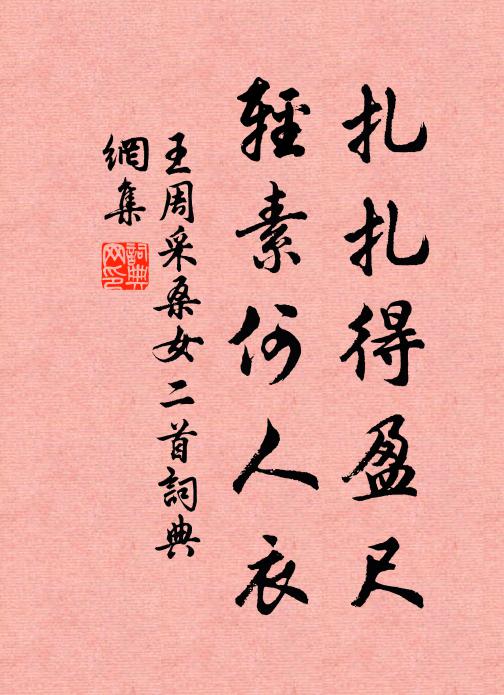 扎扎得盈尺
輕素何人衣
王周采桑女二首詞典
網集
詞典
网印